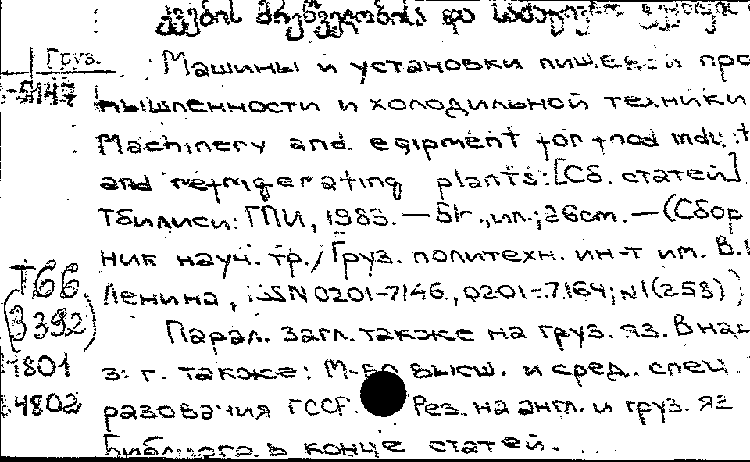 და
Груз.
Машины и установки пищевой про
мышленности и холодильной техники
Machinery and eqipment for food indust
and refrigerating plants: [Сб. статей].
Тбилиси: ГПИ, 1983. — 51 с., ил.; 26 см. — (Сбор
ник науч. тр./ Груз. политехн. ин-т им. В.И
Ленина, ISSN 0201-7146, 0201-7164; N1(258))
Парал. загл. также на груз. яз. В над
заг. также: М-во высш. и сред. спец.
разования ГССР. Рез. на англ. и груз. яз
Библиогр. в конце статей.
Т66
(3392)
1801
4802